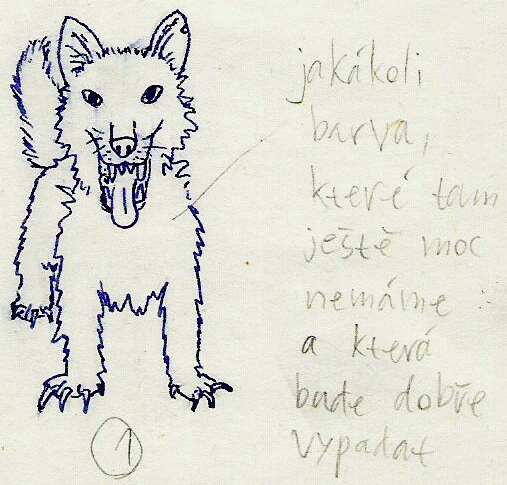 jakákoli
barva,
které tam
ještě moc
nemáme
a která
bude dobře
vypadat
1